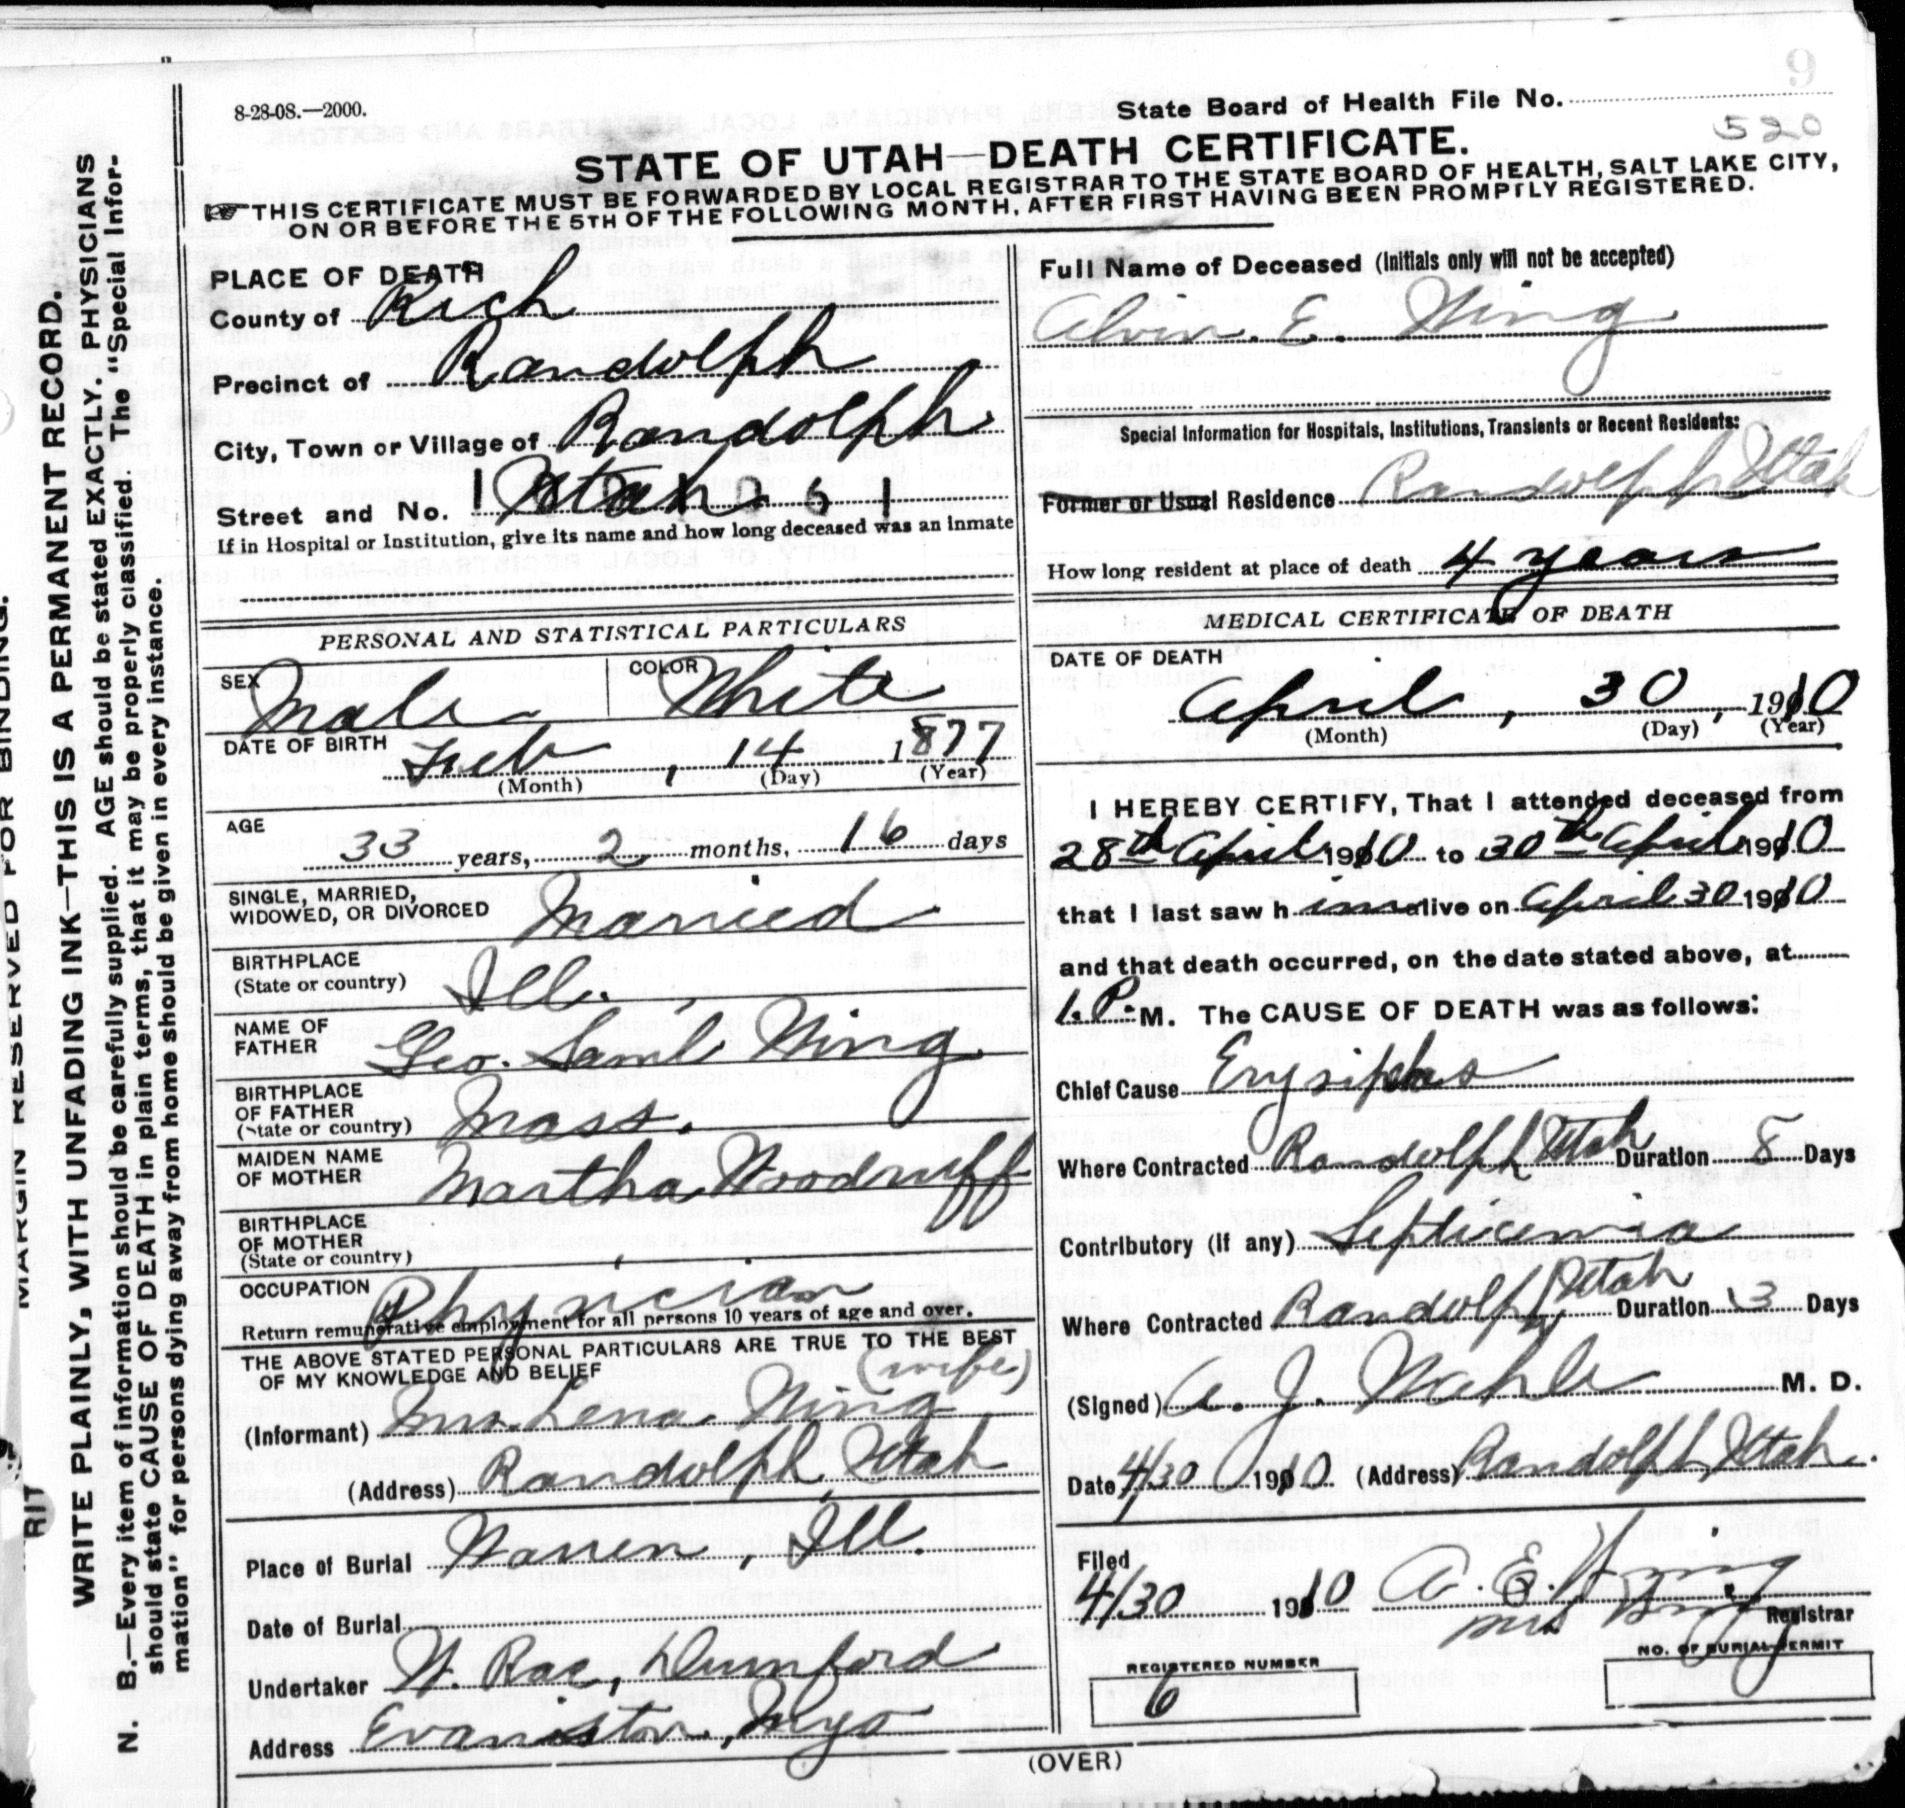 9
8-28-08.—2000.
State Board of Health File No.
520
STATE OF UTAH—DEATH CERTIFICATE.
THIS CERTIFICATE MUST BE FORWARDED BY LOCAL REGISTRAR TO THE STATE BOARD OF HEALTH, SALT LAKE CITY,
ON OR BEFORE THE 5TH OF THE FOLLOWING MONTH, AFTER FIRST HAVING BEEN PROMPTLY REGISTERED.
MARGIN RESERVED FOR BINDING.
WRITE PLAINLY, WITH UNFADING INK—THIS IS A PERMANENT RECORD.
N. B.—Every item of information should be carefully supplied. AGE should be stated EXACTLY. PHYSICIANS
should state CAUSE OF DEATH in plain terms, that it may be properly classified. The "Special Infor-
mation" for persons dying away from home should be given in every instance.
PLACE OF DEATH
County of Rich
Precinct of Randolph
City, Town or Village of Randolph
Street and No. Utah
If in Hospital or Institution, give its name and how long deceased was an inmate
PERSONAL AND STATISTICAL PARTICULARS
SEX Male COLOR White
DATE OF BIRTH Feb, 14 1877
(Month) (Day) (Year)
AGE
33 years, 2 months, 16 days
SINGLE, MARRIED,
WIDOWED, OR DIVORCED Married
BIRTHPLACE
(State or country) Ill.
NAME OF
FATHER Geo. Saml Wing
BIRTHPLACE
OF FATHER
(State or country) Mass.
MAIDEN NAME
OF MOTHER Martha Woodruff
BIRTHPLACE
OF MOTHER
(State or country)
OCCUPATION Physician
Return remunerative employment for all persons 10 years of age and over.
THE ABOVE STATED PERSONAL PARTICULARS ARE TRUE TO THE BEST
OF MY KNOWLEDGE AND BELIEF
(wife)
(Informant) Mrs. Lena Wing
(Address) Randolph, Utah
Place of Burial Warren, Ill.
Date of Burial
Undertaker W. Rae, Dumford
Address Evanston, Wyo
Full Name of Deceased (Initials only will not be accepted)
Alvin. E. Wing
Special Information for Hospitals, Institutions, Transients or Recent Residents:
Former or Usual Residence Randolph Utah
How long resident at place of death 4 years
MEDICAL CERTIFICATE OF DEATH
DATE OF DEATH
April, 30, 1910
(Month) (Day) (Year)
I HEREBY CERTIFY, That I attended deceased from
28th April 1910 to 30th April 1910
that I last saw him alive on April 30 1910
and that death occurred, on the date stated above, at
1. P. M. The CAUSE OF DEATH was as follows:
Chief Cause Erysiplas
Where Contracted Randolph Utah Duration 8 Days
Contributory (if any) Septicemia
Where Contracted Randolph, Utah Duration 3 Days
(Signed) A. J. M. D.
Date 4/30 1910 (Address) Randolph, Utah.
Filed
4/30 1910 A. E. Wing
Mrs Wing Registrar
REGISTERED NUMBER
6
NO. OF BURIAL PERMIT
(OVER)